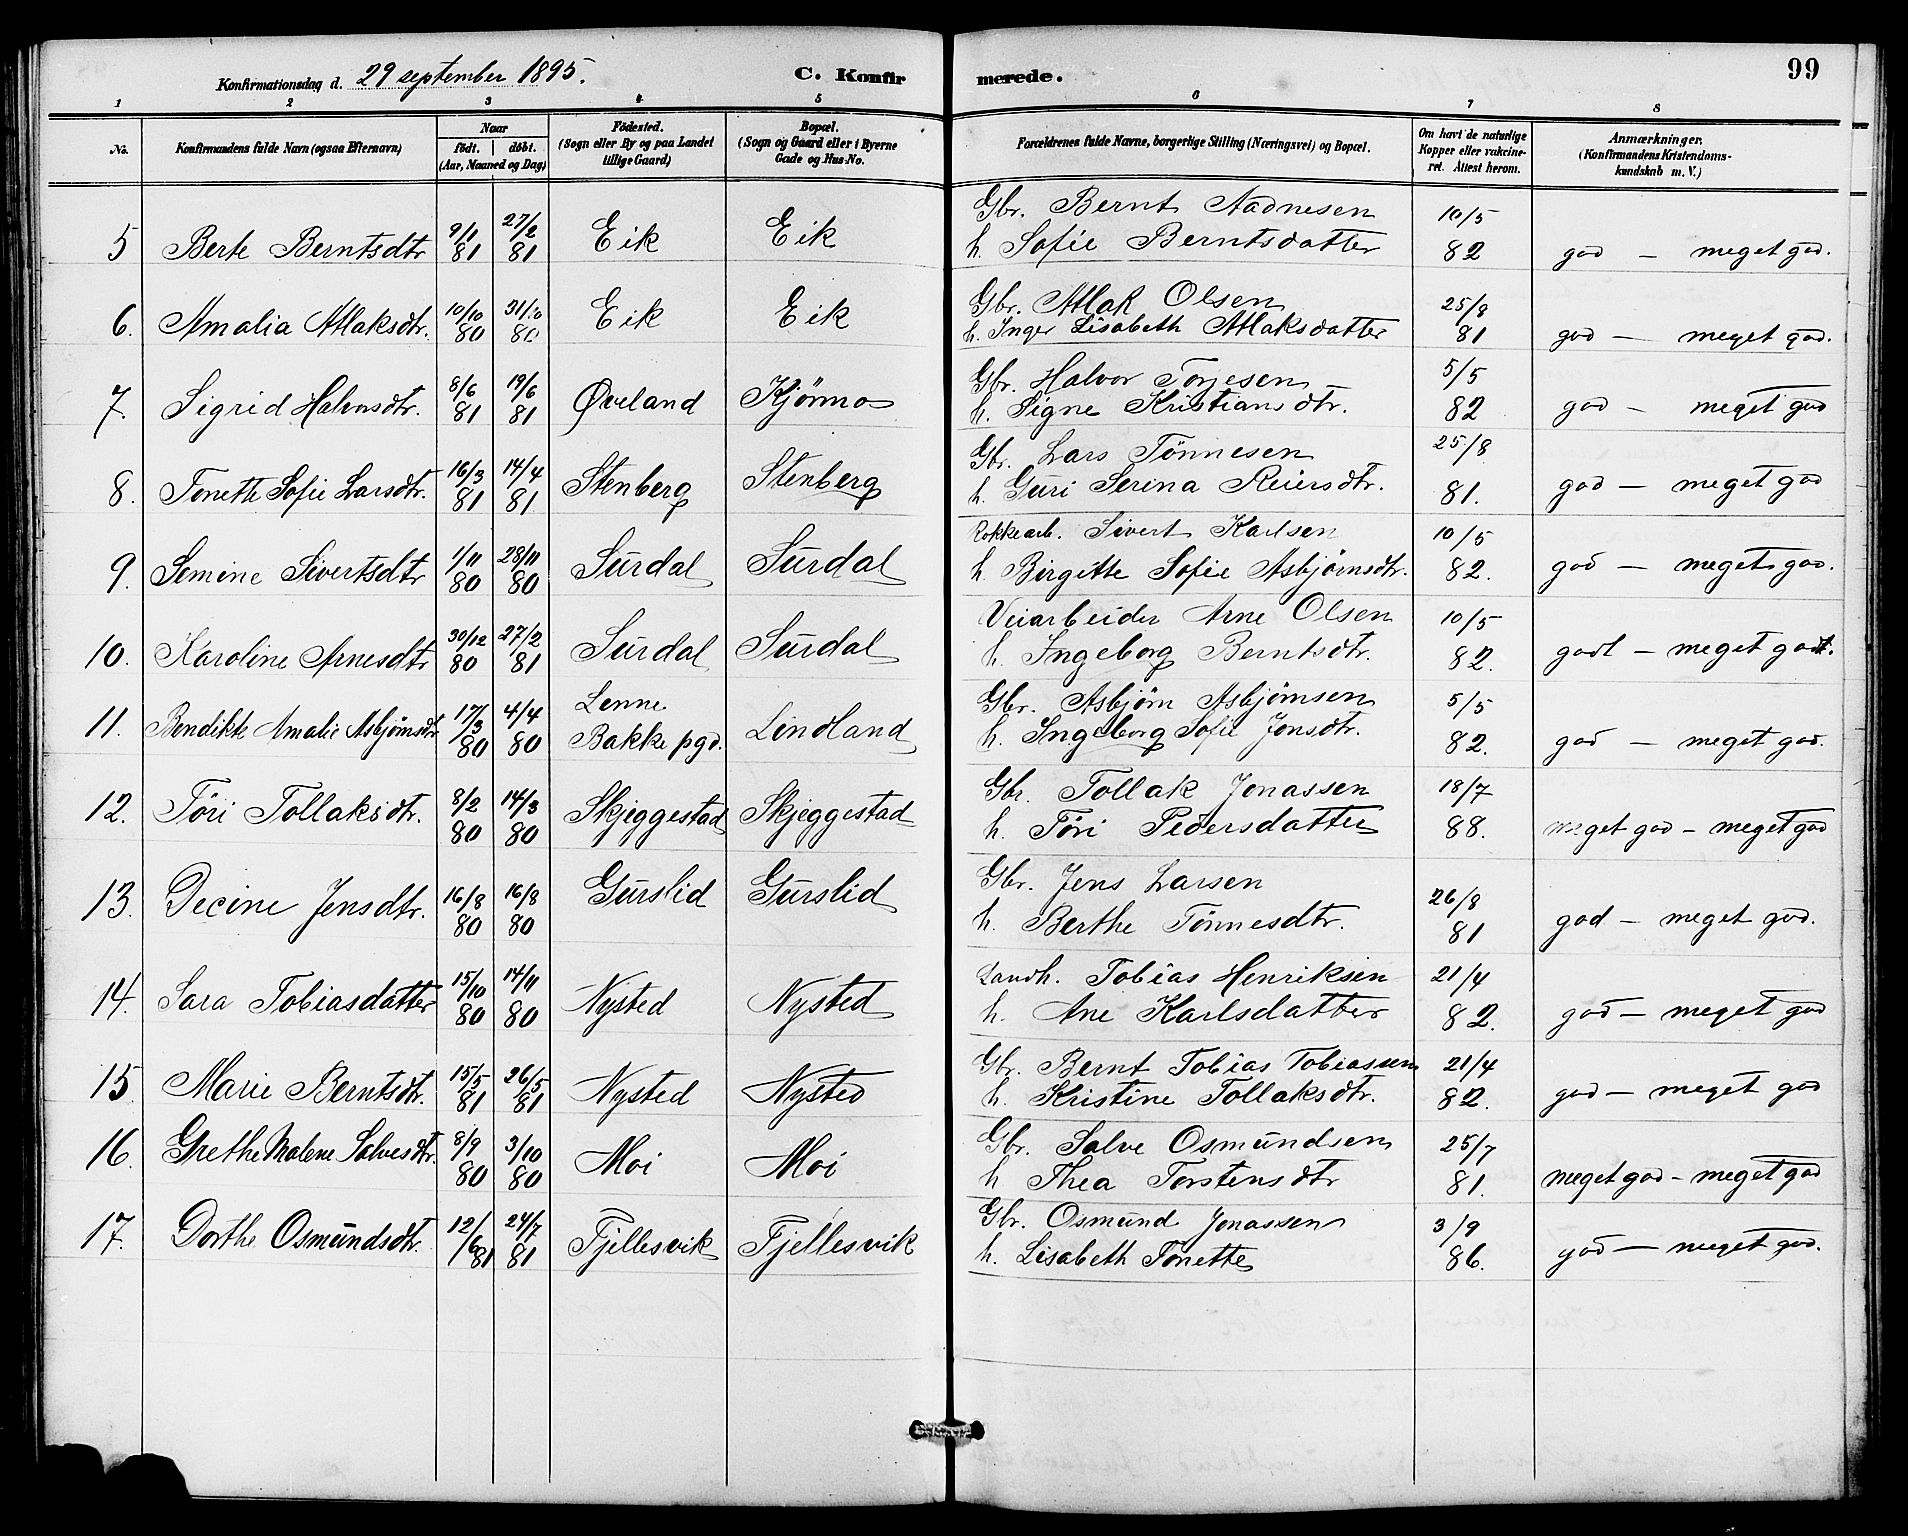 Konfirmationsdag d. 29 september 1895. C. Konfirmerede. 99
1 2 3 4 5 6 7 8
No. Konfirmandens fulde Navn (ogsaa Efternavn) Naar født. døbt. (Aar, Maaned og Dag) Fødested. (Sogn eller By og paa Landet tillige Gaard) Bopæl. (Sogn og Gaard eller i Byerne Gade og Hus-No. Forældrenes fulde Navne, borgerlige Stilling (Næringsvei) og Bopæl. Om havt de naturlige Kopper eller vakcineret. Attest herom. Anmærkninger. (Konfirmandens Kristendomskundskab m. V.)
5 Berte Berntsdtr 9/1 81 27/2 81 Eik Eik Gbr. Bernt Aadnesen 10/5
h. Sofie Berntsdatter 82 god — meget god.
6. Amalia Atlaksdtr. 10/10 80 31/10 80 Eik Eik Gbr. Atlak Olsen 25/8
h. Inger Lisabeth Atlaksdatter 81 god — meget god.
7. Sigrid Halvorsdtr. 8/6 81 19/6 81 Øveland Kjørmo Gbr. Halvor Torjesen 5/5
h. Signe Kristiansdtr. 82 god — meget god
8. Tonette Sofie Larsdtr. 16/3 81 14/4 81 Stenberg Stenberg Gbr. Lars Tönnesen 25/8
h. Guri Serina Reiersdtr. 81. god — meget god
9. Semine Sivertsdtr 1/11 80 28/11 80 Surdal Surdal Rokkearb. Sivert Karlsen 10/5
h. Birgitte Sofie Asbjørnsdtr. 82. god — meget god.
10. Karoline Arnesdtr 30/12 80 27/2 81 Surdal Surdal Veiarbeider Arne Olsen 10/5
h. Ingeborg Berntsdtr. 82. godt — meget godt.
11. Bendikte Amalie Asbjørnsdtr 17/3 80 4/4 80 Lenne Bakke pgd. Lindland Gbr. Asbjørn Asbjørnsen 5/5
h. Ingeborg Sofie Jonsdtr. 82. god — meget god.
12. Töri Tollaksdtr. 8/2 80 14/3 80 Skjeggestad Skjeggestad Gbr. Tollak Jonassen 18/7
h. Töri Pedersdatter 88. meget god — meget god
13. Decine Jensdtr. 16/8 80 16/8 80 Gurslid Gurslid Gbr. Jens Larsen 26/8
h. Berthe Tönnesdtr. 81 god — meget god.
14. Sara Tobiasdatter 15/10 80 14/11 80 Nysted Nysted Landh. Tobias Henriksen 21/4
h. Ane Karlsdatter 82. god — meget god
15 Marie Berntsdtr. 15/5 81 26/5 81 Nysted Nysted Gbr. Bernt Tobias Tobiassen 21/4
h. Kristine Tollaksdtr. 82. god — meget god
16. Grethe Malene Salvesdtr. 8/9 80 3/10 80 Moi Moi Gbr. Salve Osmundsen 25/7
h Thea Torstensdtr 81. meget god — meget god
17. Dorthe Osmundsdtr. 12/6 81 24/7 81 Fjellesvik Fjellesvik Gbr. Osmund Jonassen 3/9
h. Lisabeth Tonette 86. god — meget god.